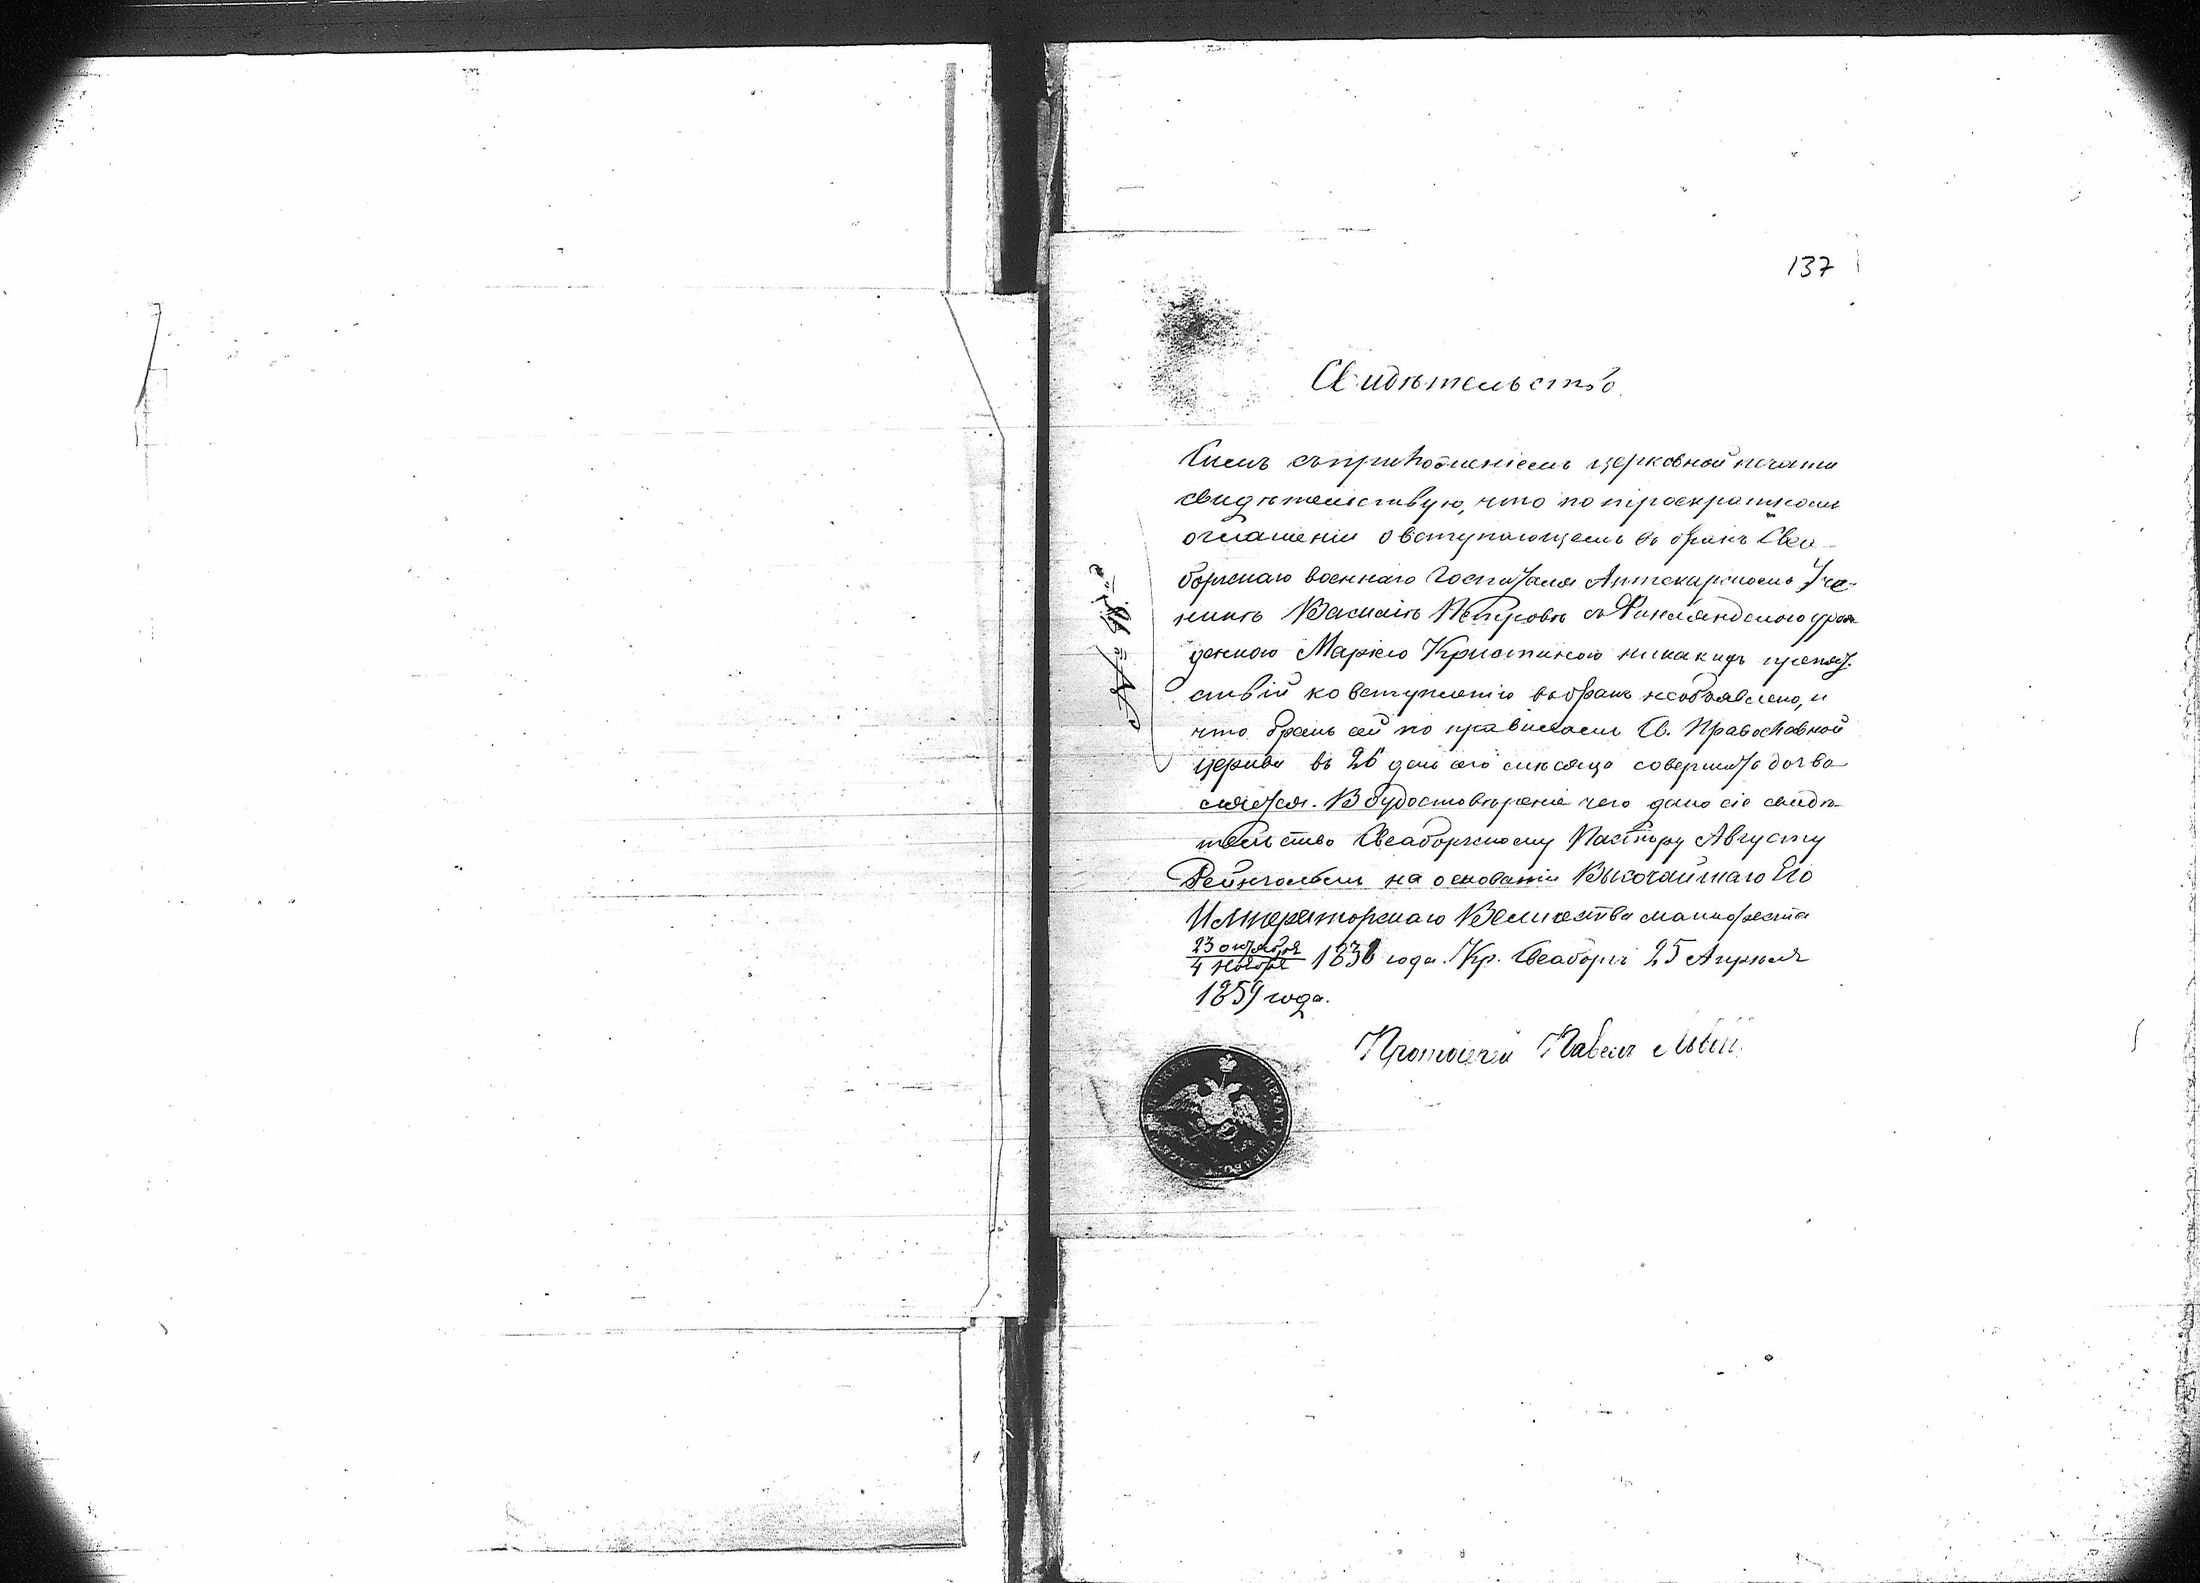 137
Свидѣтельство
Симъ съ приложеніемъ церковной печати
свидѣтельствую, что по троекратномъ
оглашеніи о вступающемъ въ бракъ Свеа-
боргскаго военнаго Госпиталя Аптекарскомъ Уче-
никѣ Василіѣ Петровѣ съ Финляндскою урож
денкою Маріею Кристиною никакихъ препят-
ствій ко вступленію въ бракъ не объявлено, и
что бракъ сей по правиламъ Св. Православной
церкви въ 26 день сего мѣсяца совершить дозво
ляется. В удостовѣреніе чего дано сіе свидѣ
тельство Свеаборгскому Пастору Августу
на основаніи Высочайшаго Его
Императорскаго Величества манифеста
23 октября
4 ноября 183 года. Кр. Свеаборгъ 25 Апрѣля
1859 года.
Протоіерей Павелъ